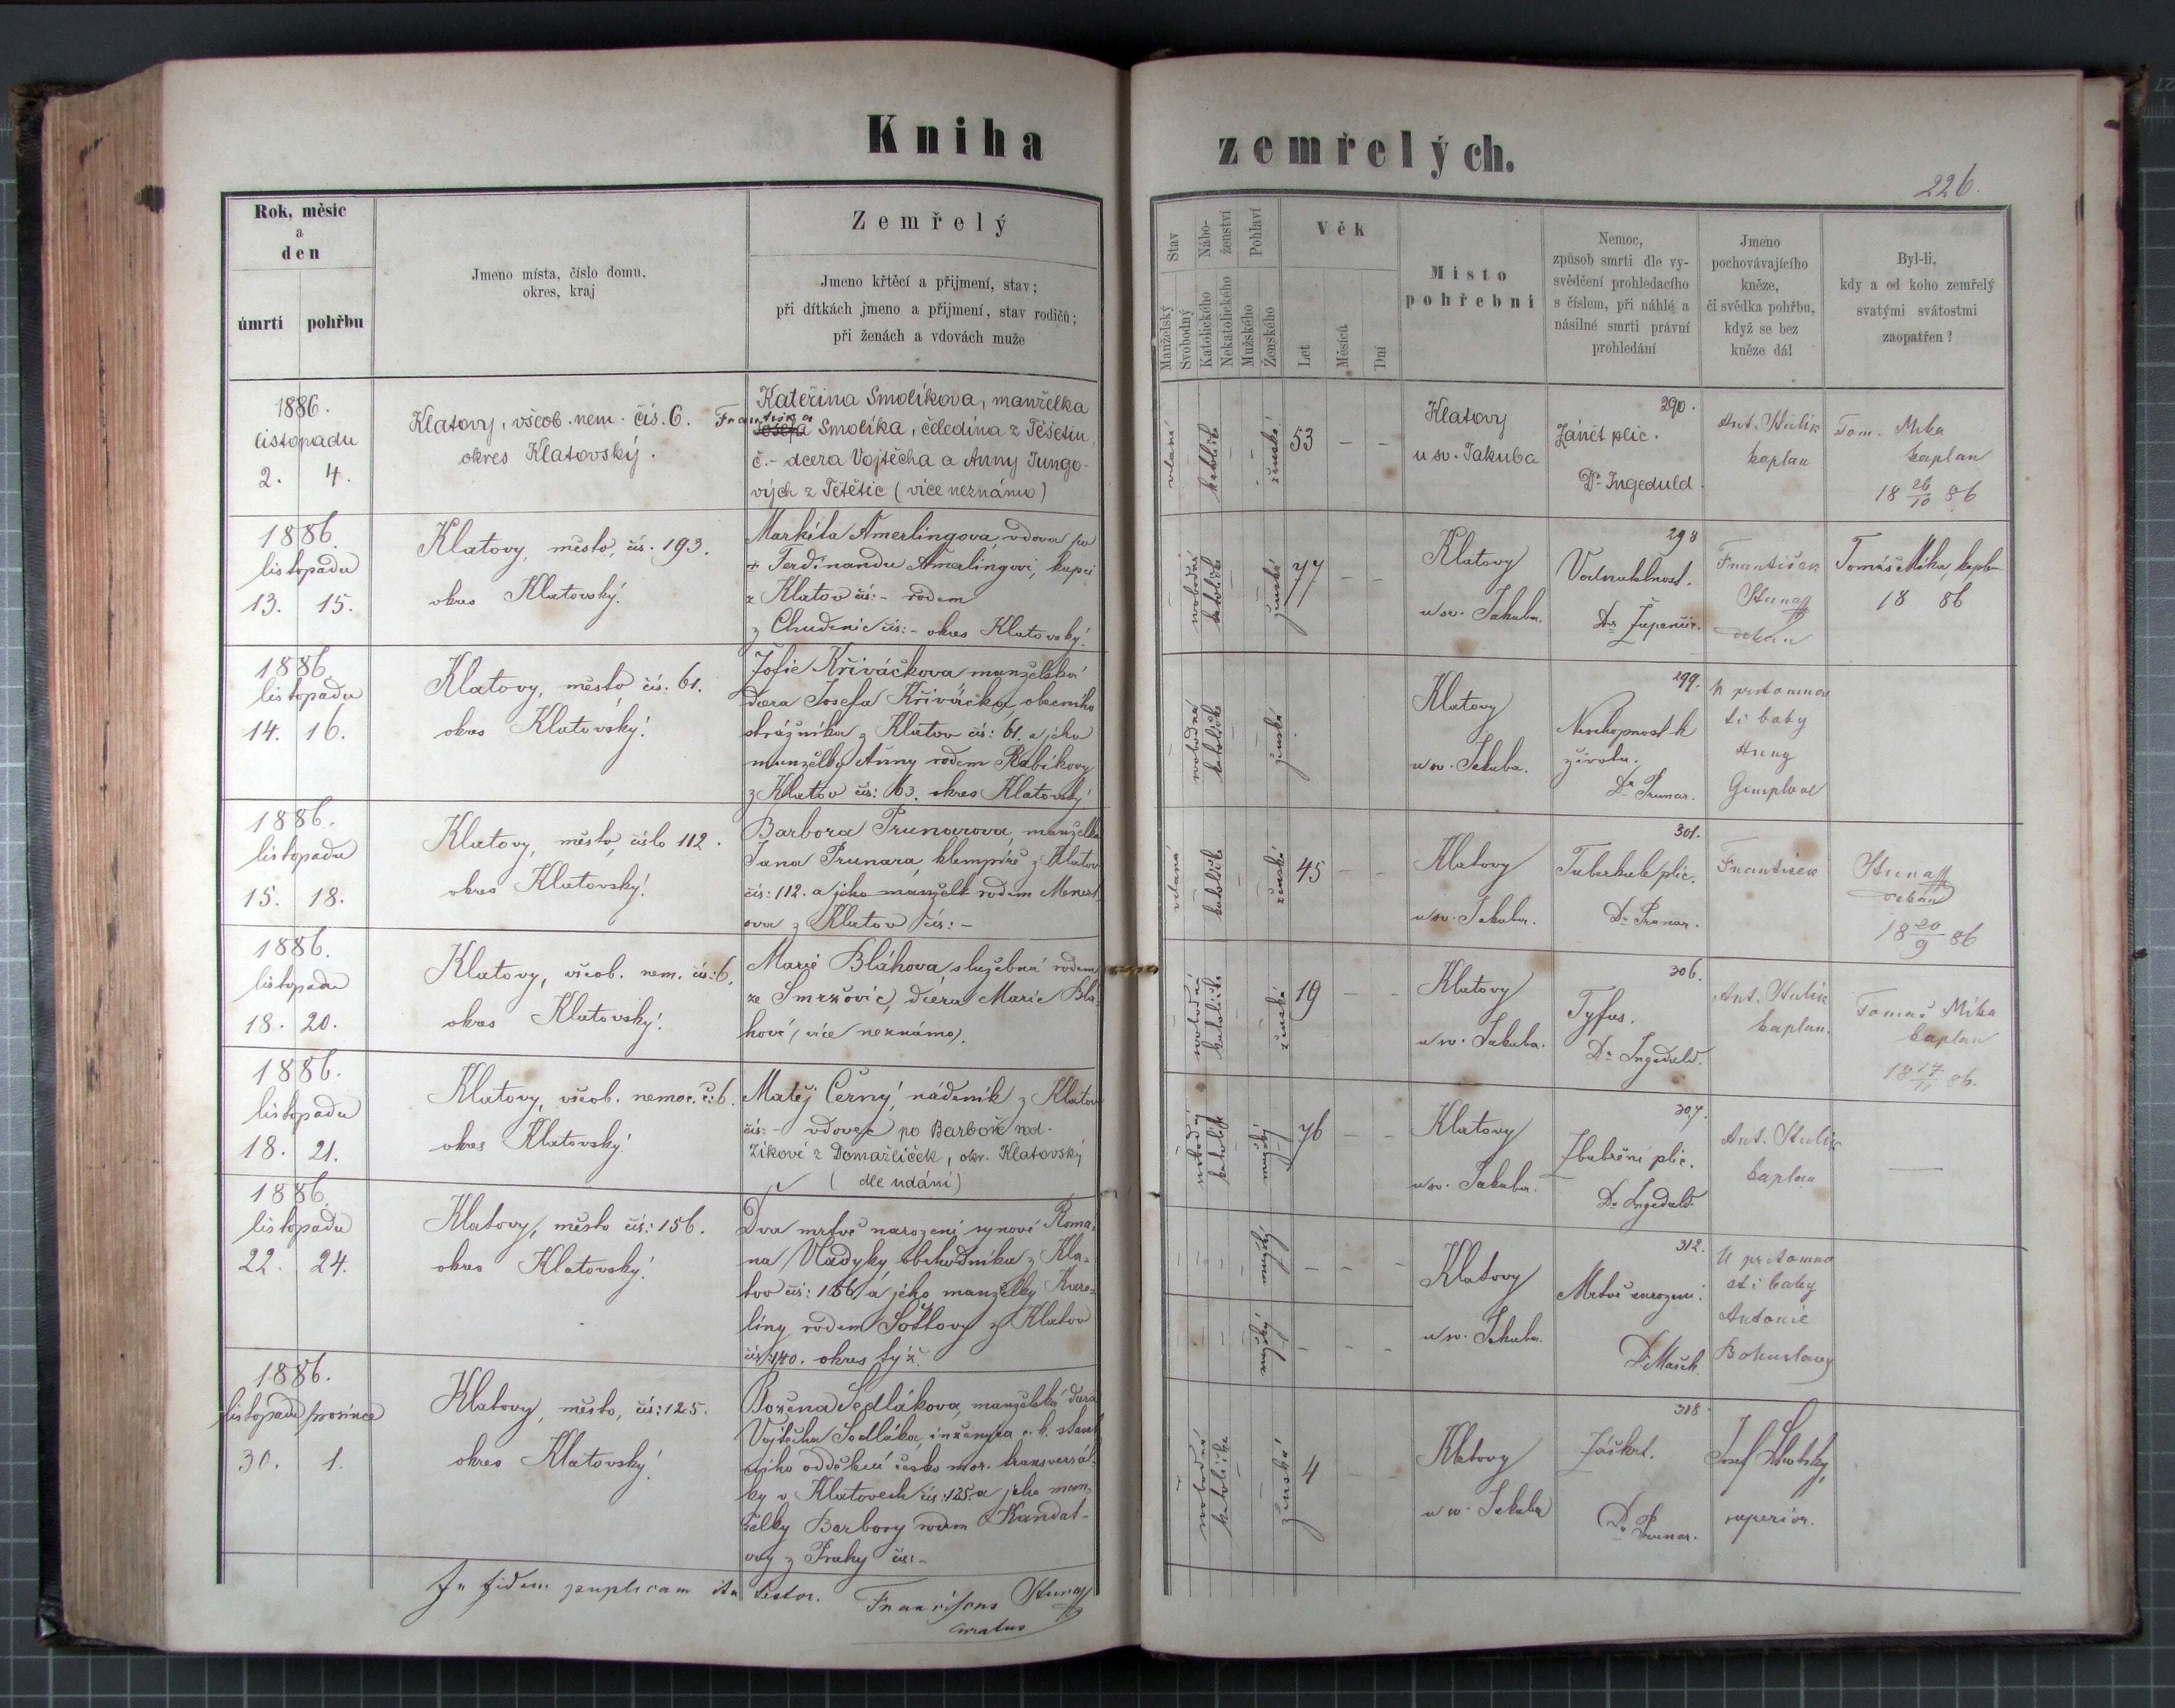 Kniha zemřelých.
226.
Rok, měsíc
a
den
úmrtí pohřbu
Jmeno místa, číslo domu.
okres, kraj
Zemřelý
Jmeno křtěcí a přijmení, stav;
při dítkách jmeno a přijmení, stav rodičů;
při ženách a vdovách muže
Stav
Manželský
Svobodný
Nábo-
ženství
Katolického
Nekatolického
Pohlaví
Mužského
Ženského
Věk
Let
Měsíců
Dní
Místo
pohřební
Nemoc,
způsob smrti dle vy-
svědčení prohledacího
s číslem, při náhlé a
násilné smrti právní
prohledání
Jmeno
pochovávajícího
kněze,
či svědka pohřbu,
když se bez
kněze dál
Byl-li,
kdy a od koho zemřelý
svatými svátostmi
zaopatřen?
1886.
listopadu
2. 4.
Klatovy, všeob. nem. čís. 6.
okres Klatovský.
Kateřina Smolíkova, manželka
Františka
Josefa Smolíka, čeledína z Těšetin,
č. - dcera Vojtěcha a Anny Jungo-
vých z Tetětic (více neznámo)
vdaná
katolické
ženské
53 - -
Klatovy
u sv. Jakuba
290.
Zánět plic.
Dr. Ingeduld.
Ant. Stulík
kaplan
Tom. Mika
kaplan
18 26/10 86
1886.
listopadu
13. 15.
Klatovy, město, čís. 193.
okres Klatovský.
Markéta Amerlingova, vdova po
+ Ferdinandu Amerlingovi, kupci
z Klatov čís: - rodem
z Chudenic čís: - okres Klatovský.
svobodná
katolické
ženské
77 - -
Klatovy
u sv. Jakuba.
298
Vodnatelnost.
Dr. Županěič.
František
Stuna
děkan
Tomáš Mika, kaplan
18 86
1886
listopadu
14. 16.
Klatovy, město čís. 61.
okres Klatovský.
Žofie Křiváčkova manželská
dcera Josefa Křiváčka, obecního
strážníka z Klatov čís: 61. a jeho
manželky Anny rodem Rabíkovy
z Klatov čís: 63. okres Klatovský
svobodná
katolické
ženské
Klatovy
u sv. Jakuba.
299.
Neschopnost k
životu.
Dr. Prunar.
U přítomnos
ti baby
Anny
1886.
listopadu
15. 18.
Klatovy, město, číslo 112.
okres Klatovský.
Barbora Prunarova, manželka
Jana Prunara, klempíře z Klatov
čís: 112. a jeho manželk rodem
ova z Klatov čís: -
vdaná
katolické
ženské
45 - -
Klatovy
u sv. Jakuba.
301.
Tuberkule plic.
Dr. Prunar.
František
Stuna
děkan
18 20/9 86
1886.
listopadu
18. 20.
Klatovy, všeob. nem. čís: 6.
okres Klatovský.
Marie Bláhova, služebná rodem
ze Smržovic, dcera Marie Blá-
hové (více neznámo).
svobodná
katolické
ženské
19 - -
Klatovy
u sv. Jakuba.
306.
Tyfus.
Dr. Ingeduld.
Ant. Stulík
kaplan.
Tomáš Mika
kaplan
18 17/11 86.
1886.
listopadu
18. 21.
Klatovy, všeob. nemoc. č: 6.
okres Klatovský.
Matěj Černý, nádeník z Klatov
čís: - vdovec po Barboře rod.
Zíkové z Domažliček, okr. Klatovský
(dle udání)
svobodný
katolické
mužský
76 - -
Klatovy
u sv. Jakuba.
307.
Zbubření plic.
Dr. Ingeduld.
Ant. Stulík
kaplan
-
1886.
listopadu
22. 24.
Klatovy, město čís: 156.
okres Klatovský.
Dva mrtvě narození synové Roma-
na Vladyky obchodníka z Kla-
tov čís: 156 a jeho manželky Karo-
líny rodem Šottovy z Klatov
čís: 140. okres týž.
mužský
mužský
Klatovy
u sv. Jakuba.
312.
Mrtvě narození.
Dr. Mašek.
U přítomno
sti baby
Antonie
Bohuslavy
1886.
listopadu prosince
30. 1.
Klatovy, město, čís: 125.
okres Klatovský.
Božena Sedlákova, manželská dcera
Vojtěcha Sedláka, inženýra c. k. staveb
ního oddělení česko mor. transversál-
ky v Klatovech čís: 125. a jeho man-
želky Barbory rodem Kandat-
ovy z Prahy čís: -
svobodná
katolické
ženské
4 - -
Klatovy
u sv. Jakuba
318.
Záškrt.
Dr. Prunar.
Josef
superior.
In fidem puplicam ita testor. Franciscus Stuna
curatus